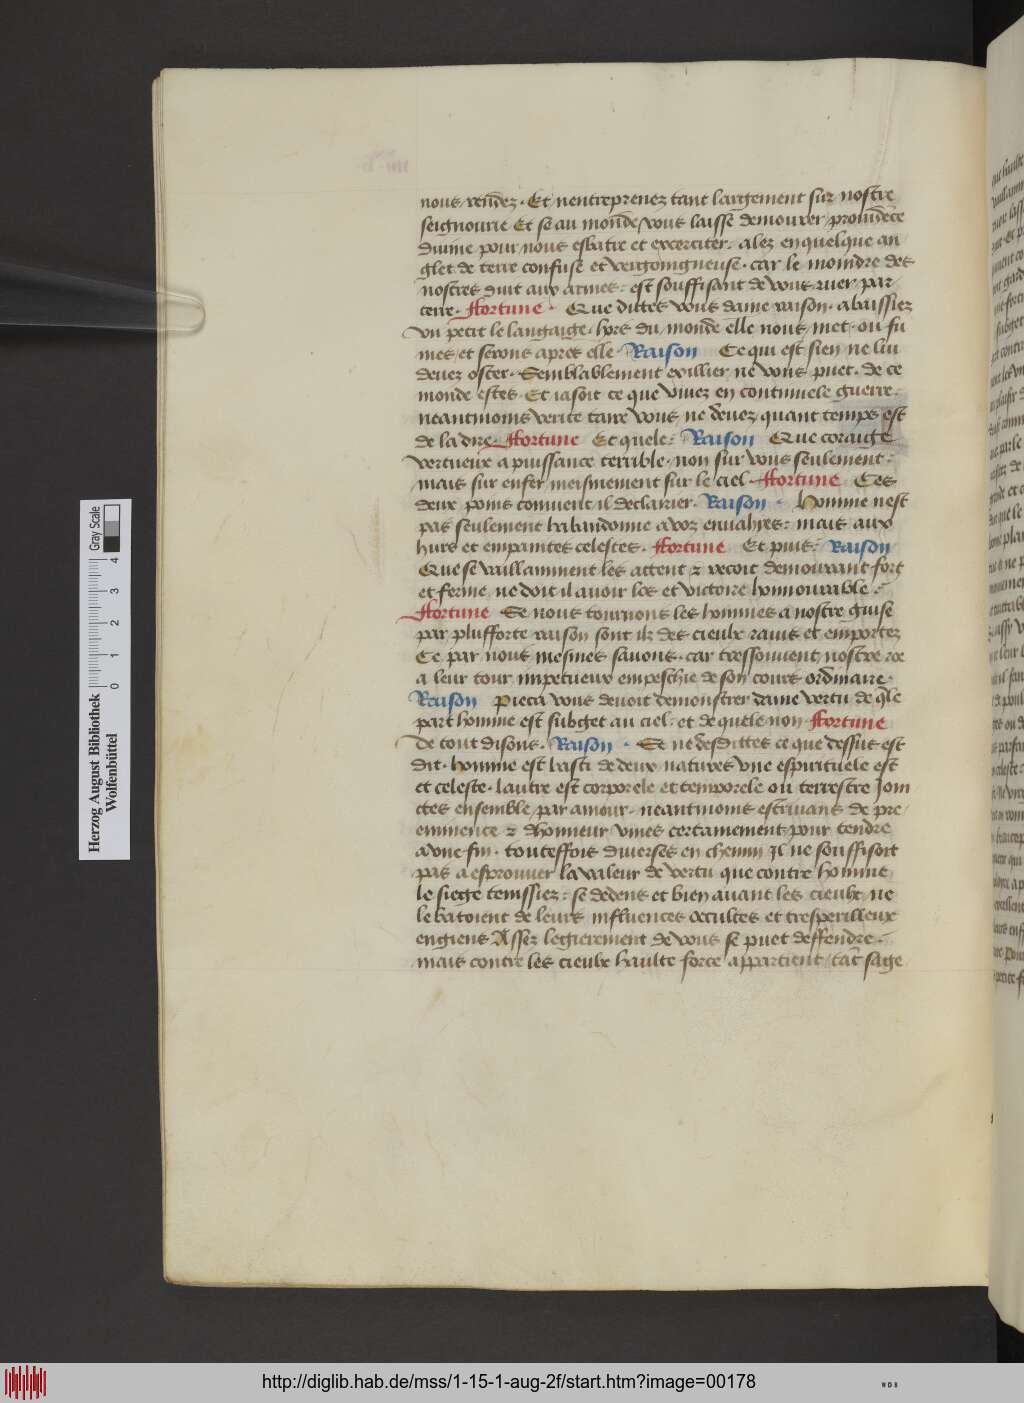 nous rendez · Et nentreprenez tant largement sur nostre
seignourie Et se au monde vous laisse demourer prouidēce
diuine pour nous esbatre et excerciter · alez en quelque an
glet de terre confuse et vergoingneuse · car le moindre des
nostres duit aux armes : est souffisant de vous ruer par
terre · Ffortune · Que dittes vous dame raison · abaissiez
vn petit le langaige · hors du monde elle nous met · ou fu
mes et serons apres elle · Raison Ce qui est sien ne lui
deuez oster · Semblablement exillier ne vous puet · de ce
monde estes · Et iasoit ce que viuez en continuele guerre ·
neantmoins verite taire vous ne deuez quant temps est
de la dire · Ffortune Et quele : Raison Que coraige
vertueux a puissance terrible · non sur vous seulement :
mais sur enfer meismement sur le ciel · Ffortune Ces
deux poins conuient il declairier · Raison · Homme nest
pas seulement habandonne a voz enuahyes : mais aux
hurs et empaintes celestes · Ffortune Et puis : Raison
Que se vaillamment les attent ⁊ recoit demourant fort
et ferme ne doit il auoir los et victoire honnourable :
Ffortune Se nous tournons les hommes a nostre guise
par plusforte raison sont ilz des cieulx rauis et emportez
Ce par nous mesmes sauons · car tressouuent nostre roe
a leur tour impetueux empeschie de son cours ordinaire ·
Raison Pieca vous deuoit demonstrer dame vertu de q̄le
part homme est subget au ciel : et de quele non · Ffortune
De tout disons · Raison · Se ne desdittes ce que dessus est
dit · homme est basti de deux natures vne espirituele est
et celeste · lautre est corporele et temporele ou terrestre Join
ctes ensemble par amour · neantmoins estriuans de pre
eminence ⁊ dhonneur vines certainement pour tendre
a vne fin · touteffois diuerses en chemin Il ne souffisoit
pas a esprouuer la valeur de vertu que contre homme
le siege tenissiez : se dedens et bien auant les cieulx ne
le batoient de leurs influences occultes et tresperilleux
engiens Assez legierement de vous se puet deffendre ·
mais contre les cieulx haulte force appartient / tāt sage
Herzog August Bibliothek
Wolfenbüttel
0 1 2 3 4
Gray Scale
http://diglib.hab.de/mss/1-15-1-aug-2f/start.htm?image=00178